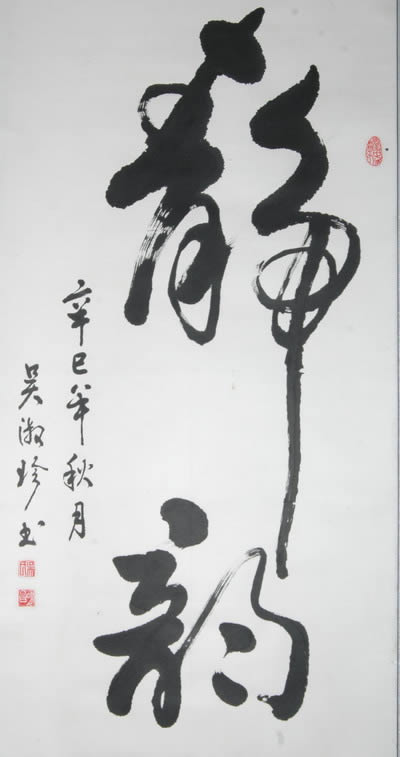 靜韵
辛巳年秋月
吴淑珍书